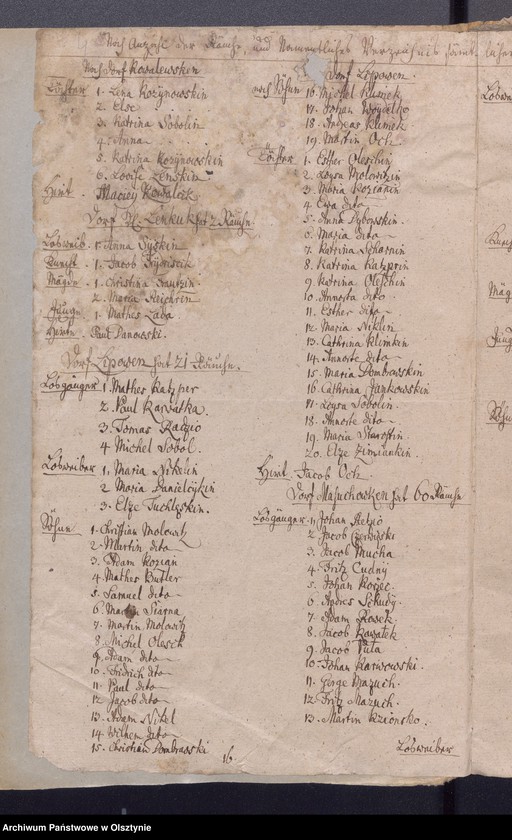 Nach Anzahl der Räuche und Namentliches Verzeichnis
Noch Dorf Kowalewsken
Töchter 1. Lena Kozynowskin
2. Else
3. Katrina Sobolin
4. Anna
5. Katrina Kozynowskin
6. Louise Zenskin
Hirt. Maciey Kowalczk
Dorf Kl. Lenkuk hat 2 Räuchn.
Losweib. 1. Anna
Knecht. 1. Jacob
Mägde. 1. Christina
2. Maria
Jung. 1. Mathes Zaba
Hirte. Paul Panowski.
Dorf Lipowen hat 21 Räuchn.
Losgänger 1. Mathes Katzper
2. Paul Karwatka
3. Tomas Radzio
4 Michel Sobol.
Losweiber 1. Maria Nikelin
2 Maria Danielczikin
3. Elze
Söhne 1. Christian Molowitz
2. Martin dito
3. Adam Kozian
4 Mathes Butler
5. Samuel dito
6 Martin Siarna
7. Martin Molowitz
8. Michel Olesch
9. Adam dito
10. Fridrich dito
11. Paul dito
12. Jacob dito
13. Adam Nikel
14. Wilhem dito
15. Christian Dombrowski
16.
Dorf Lipowen
noch Söhne 16. Michel Klimek
17. Johan Woycitko
18. Andreas Klimek
19. Martin Och
Töchter 1. Esther Oleschin
2. Loysa Molowitzin
3. Maria Kozianin
4. Ewa dito
5. Anna Dybowskin.
6. Maria dito
7. Katrina
8. Katrina Katzprin
9. Katrina Oleschin
10. Annorta dito
11. Esther dito
12. Maria Niklin
13. Cathrina Klimkin
14. Annorte dito
15. Maria Dombrowskin
16. Cathrina Jankowskin
17. Loysa Sobolin
18. Annorte dito
19. Maria Skarostin
20. Elze Zimiankin.
Hirt Jacob Och
Dorf Masuchowken hat 60 Räuchn
Losgänger 1. Johan
2 Jacob Czerwinski
3. Jacob Mucha
4. Fritz Cudny
5. Johan
6. Andres
7. Adam
8. Jacob Kowalek
9. Jacob Puta
10. Johan Karwowski.
11. Gerge Mazuch.
12. Fritz Mazuch.
13. Martin Krzionsko.
Losweiber
Losweiber
Mäg
Archiwum Państwowe w Olsztynie